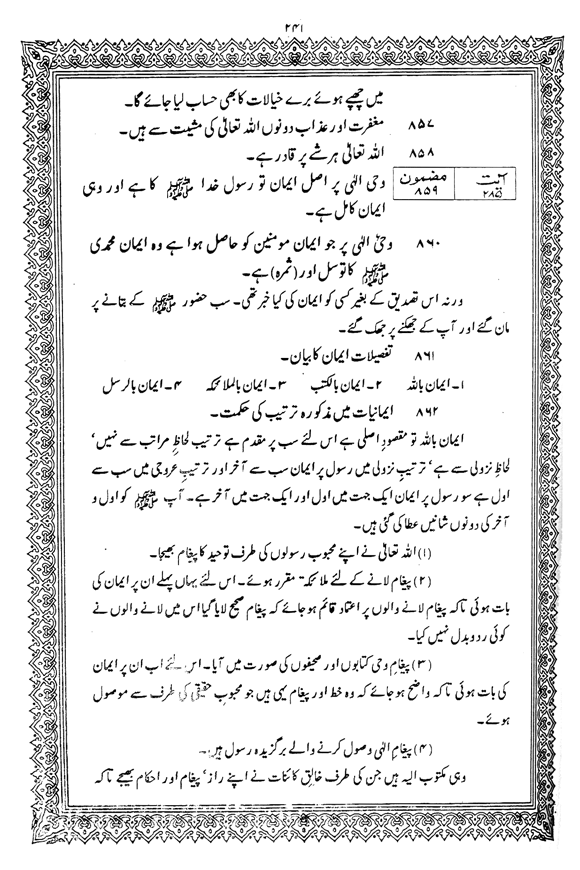 ۲۴۱
میں چھپے ہوئے برے خیالات کا بھی حساب لیا جائے گا۔
۸۵۷ مغفرت اور عذاب دونوں اللہ تعالیٰ کی مشیت سے ہیں۔
۸۵۸ اللہ تعالیٰ ہر شے پر قادر ہے۔
آیت ۲۸۵ مضمون ۸۵۹ وحی الٰہی پر اصل ایمان تو رسول خدا ﷺ کا ہے اور وہی
ایمان کامل ہے۔
۸۶۰ وحی الٰہی پر جو ایمان مومنین کو حاصل ہوا ہے وہ ایمان محمدی
ﷺ کا توسل اور (ثمرہ) ہے۔
ورنہ اس تصدیق کے بغیر کسی کو ایمان کی کیا خبر تھی۔ سب حضور ﷺ کے بتانے پر
مان گئے اور آپ کے جھکنے پر جھک گئے۔
۸۶۱ تفصیلات ایمان کا بیان۔
۱۔ ایمان باللہ ۲۔ ایمان بالکتب ۳۔ ایمان بالملائکہ ۴۔ ایمان بالرسل
۸۶۲ ایمانیات میں مذکورہ ترتیب کی حکمت۔
ایمان باللہ تو مقصودِ اصلی ہے اس لئے سب پر مقدم ہے ترتیب لحاظِ مراتب سے نہیں‘
لحاظِ نزولی سے ہے‘ ترتیبِ نزولی میں رسول پر ایمان سب سے آخر اور ترتیبِ عروجی میں سب سے
اول ہے سو رسول پر ایمان ایک جہت میں اول اور ایک جہت میں آخر ہے۔ آپ ﷺ کو اول و
آخر کی دونوں شانیں عطا کی گئی ہیں۔
(۱) اللہ تعالیٰ نے اپنے محبوب رسولوں کی طرف توحید کا پیغام بھیجا۔
(۲) پیغام لانے کے لئے ملائکہ مقرر ہوئے۔ اس لئے یہاں پہلے ان پر ایمان کی
بات ہوئی تاکہ پیغام لانے والوں پر اعتماد قائم ہو جائے کہ پیغام صحیح لایا گیا اس میں لانے والوں نے
کوئی ردوبدل نہیں کیا۔
(۳) پیغامِ وحی کتابوں اور صحیفوں کی صورت میں آیا۔ اس لئے اب ان پر ایمان
کی بات ہوئی تاکہ واضح ہو جائے کہ وہ خط اور پیغام یہی ہیں جو محبوبِ حقیقی کی طرف سے موصول
ہوئے۔
(۴) پیغامِ الٰہی وصول کرنے والے برگزیدہ رسول ہیں۔
وہی مکتوب الیہ ہیں جن کی طرف خالقِ کائنات نے اپنے راز‘ پیغام اور احکام بھیجے تاکہ